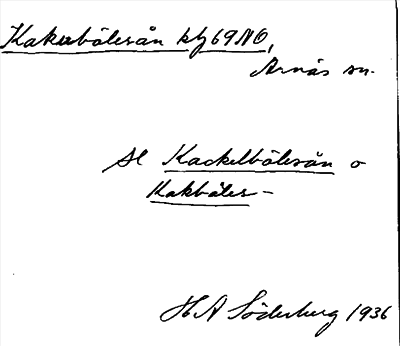 Kakubölesån kbj 69 NO,
Arnäs sn.
Se Kackelbölesån o
Kakböles-
H A Söderberg 1936